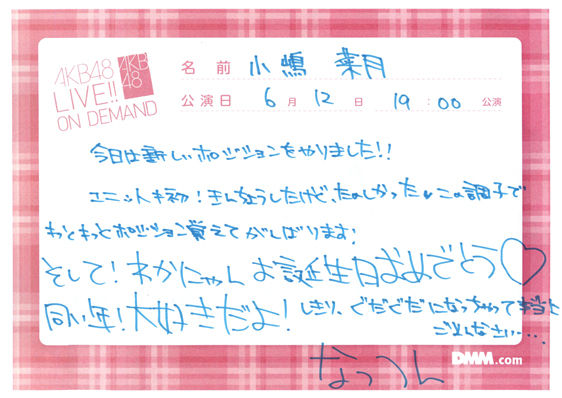 AKB48
LIVE!!
ON DEMAND
AKB
48
名前 小嶋 菜月
公演日 6月 12日 19:00 公演
今日は新しいポジションをやりました!!
ユニットも初!きんちょうしたけど、たのしかった♥この調子で
もっともっとポジション覚えてがんばります!
そして!わかにゃん お誕生日おめでとう♡
同い年!大好きだよ!しきり、ぐだぐだになっちゃって本当に
ごめんなさい…
なっつん
DMM.com